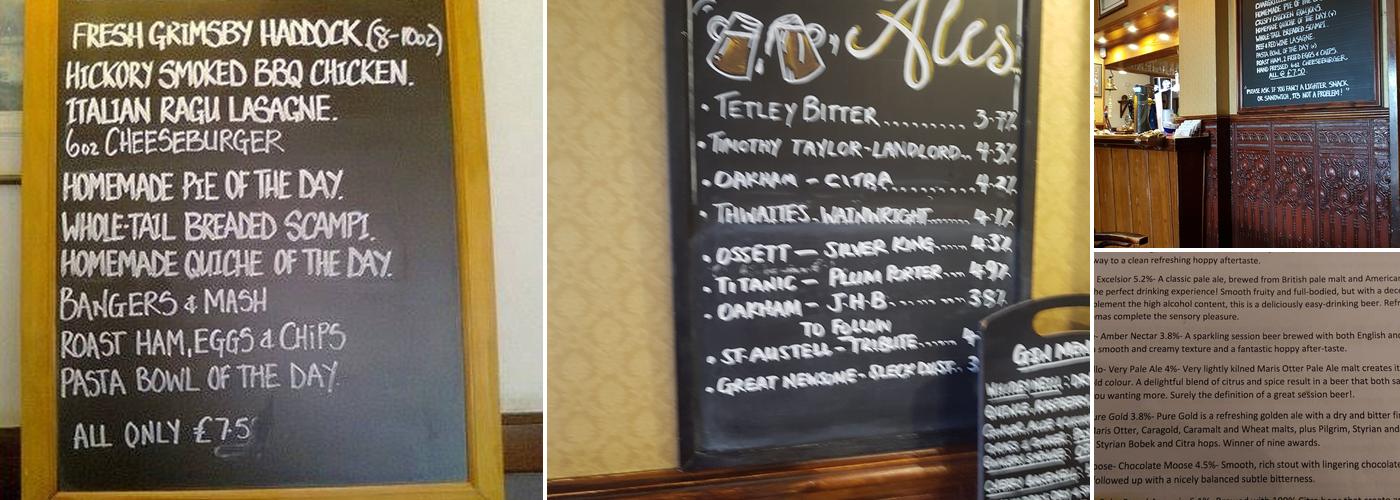 FRESH GRIMSBY HADDOCK (8-10oz)
HICKORY SMOKED BBQ CHICKEN.
ITALIAN RAGU LASAGNE.
6oz CHEESEBURGER
HOMEMADE PIE OF THE DAY.
WHOLE-TAIL BREADED SCAMPI.
HOMEMADE QUICHE OF THE DAY.
BANGERS & MASH
ROAST HAM, EGGS & CHIPS
PASTA BOWL OF THE DAY.
ALL ONLY £7.5
Ales
• TETLEY BITTER......... 3.7%
• TIMOTHY TAYLOR-LANDLORD.. 4.3%
• OAKHAM - CITRA......... 4.2%
• THWAITES - WAINWRIGHT...... 4.1%
• OSSETT - SILVER KING..... 4.3%
• TITANIC - PLUM PORTER.... 4.9%
• OAKHAM - J.H.B....... 3.8%
TO FOLLOW
• ST-AUSTELL - TRIBUTE..... 4
• GREAT NEWSOME - SLECK DUST.. 3
GIN MEN
HOMEMADE PIE OF THE
CRISPY CHICKEN
HOMEMADE QUICHE OF THE DAY. (v)
WHOLE-TAIL BREADED SCAMPI.
BEEF & RED WINE LASAGNE.
PASTA BOWL OF THE DAY (v)
ROAST HAM, 2 FRIED EGGS & CHIPS.
HAND PRESSED 6oz CHEESEBURGER.
ALL @ £7.50
"PLEASE ASK IF YOU FANCY A LIGHTER SNACK
OR SANDWICH, IT'S NOT A PROBLEM!"
way to a clean refreshing hoppy aftertaste.
Excelsior 5.2%- A classic pale ale, brewed from British pale malt and American
he perfect drinking experience! Smooth fruity and full-bodied, but with a dece
plement the high alcohol content, this is a deliciously easy-drinking beer. Refr
omas complete the sensory pleasure.
- Amber Nectar 3.8%- A sparkling session beer brewed with both English and
smooth and creamy texture and a fantastic hoppy after-taste.
llo- Very Pale Ale 4%- Very lightly kilned Maris Otter Pale Ale malt creates it
ld colour. A delightful blend of citrus and spice result in a beer that both sa
ou wanting more. Surely the definition of a great session beer!.
ure Gold 3.8%- Pure Gold is a refreshing golden ale with a dry and bitter fin
Maris Otter, Caragold, Caramalt and Wheat malts, plus Pilgrim, Styrian and
Styrian Bobek and Citra hops. Winner of nine awards.
oose- Chocolate Moose 4.5%- Smooth, rich stout with lingering chocolate
followed up with a nicely balanced subtle bitterness.